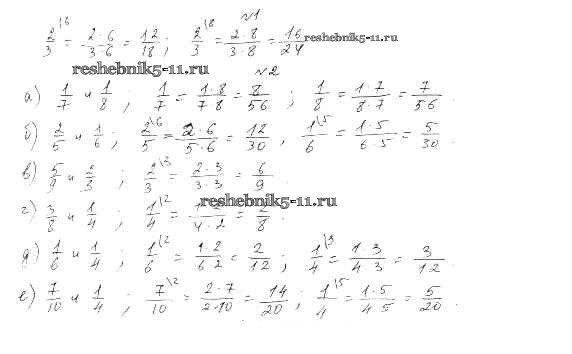 №1
2/3\6 = 2·6/3·6 = 12/18 ; 2/3\8 = 2·8/3·8 = 16/24 reshebnik5-11.ru
reshebnik5-11.ru №2
а) 1/7 и 1/8 ; 1/7 = 1·8/7·8 = 8/56 ; 1/8 = 1·7/8·7 = 7/56 .
б) 2/5 и 1/6 ; 2/5\6 = 2·6/5·6 = 12/30 , 1/6\5 = 1·5/6·5 = 5/30 .
в) 5/9 и 2/3 ; 2/3\3 = 2·3/3·3 = 6/9 .
reshebnik5-11.ru
г) 3/8 и 1/4 ; 1/4\2 = 1·2/4·2 = 2/8 .
д) 1/6 и 1/4 ; 1/6\2 = 1·2/6·2 = 2/12 ; 1/4\3 = 1·3/4·3 = 3/12 .
е) 7/10 и 1/4 ; 7/10\2 = 2·7/2·10 = 14/20 ; 1/4\5 = 1·5/4·5 = 5/20 .